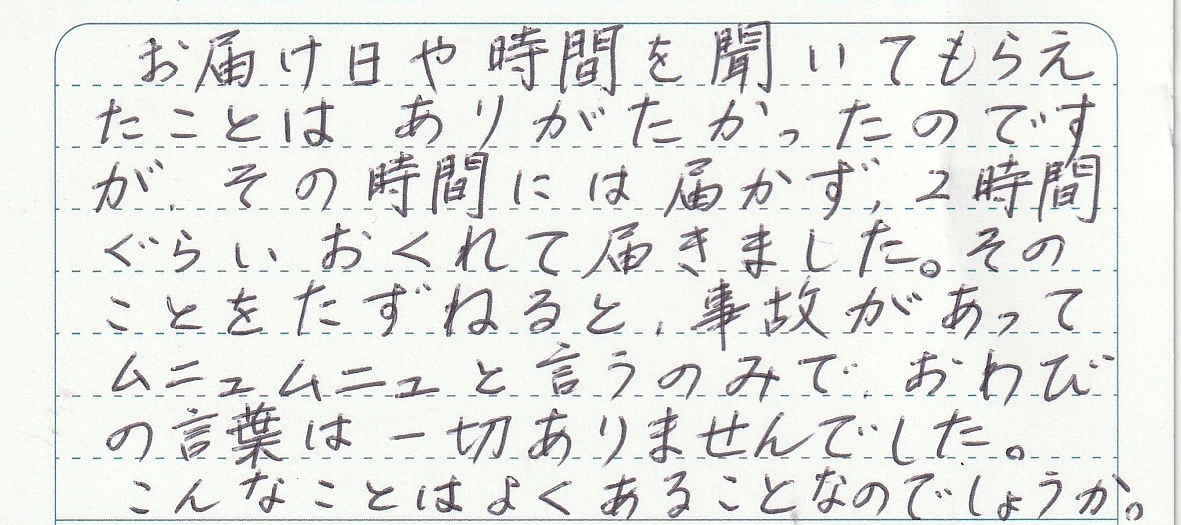 お届け日や時間を聞いてもらえ
たことは ありがたかったのです
が、その時間には届かず、2時間
ぐらい おくれて届きました。その
ことをたずねると、事故があって
ムニュムニュと言うのみで、おわび
の言葉は一切ありませんでした。
こんなことはよくあることなのでしょうか。